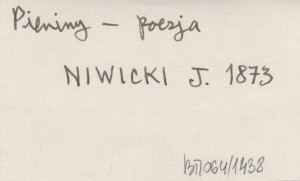 Pieniny – poezja
NIWICKI J. 1873
BП064/1438